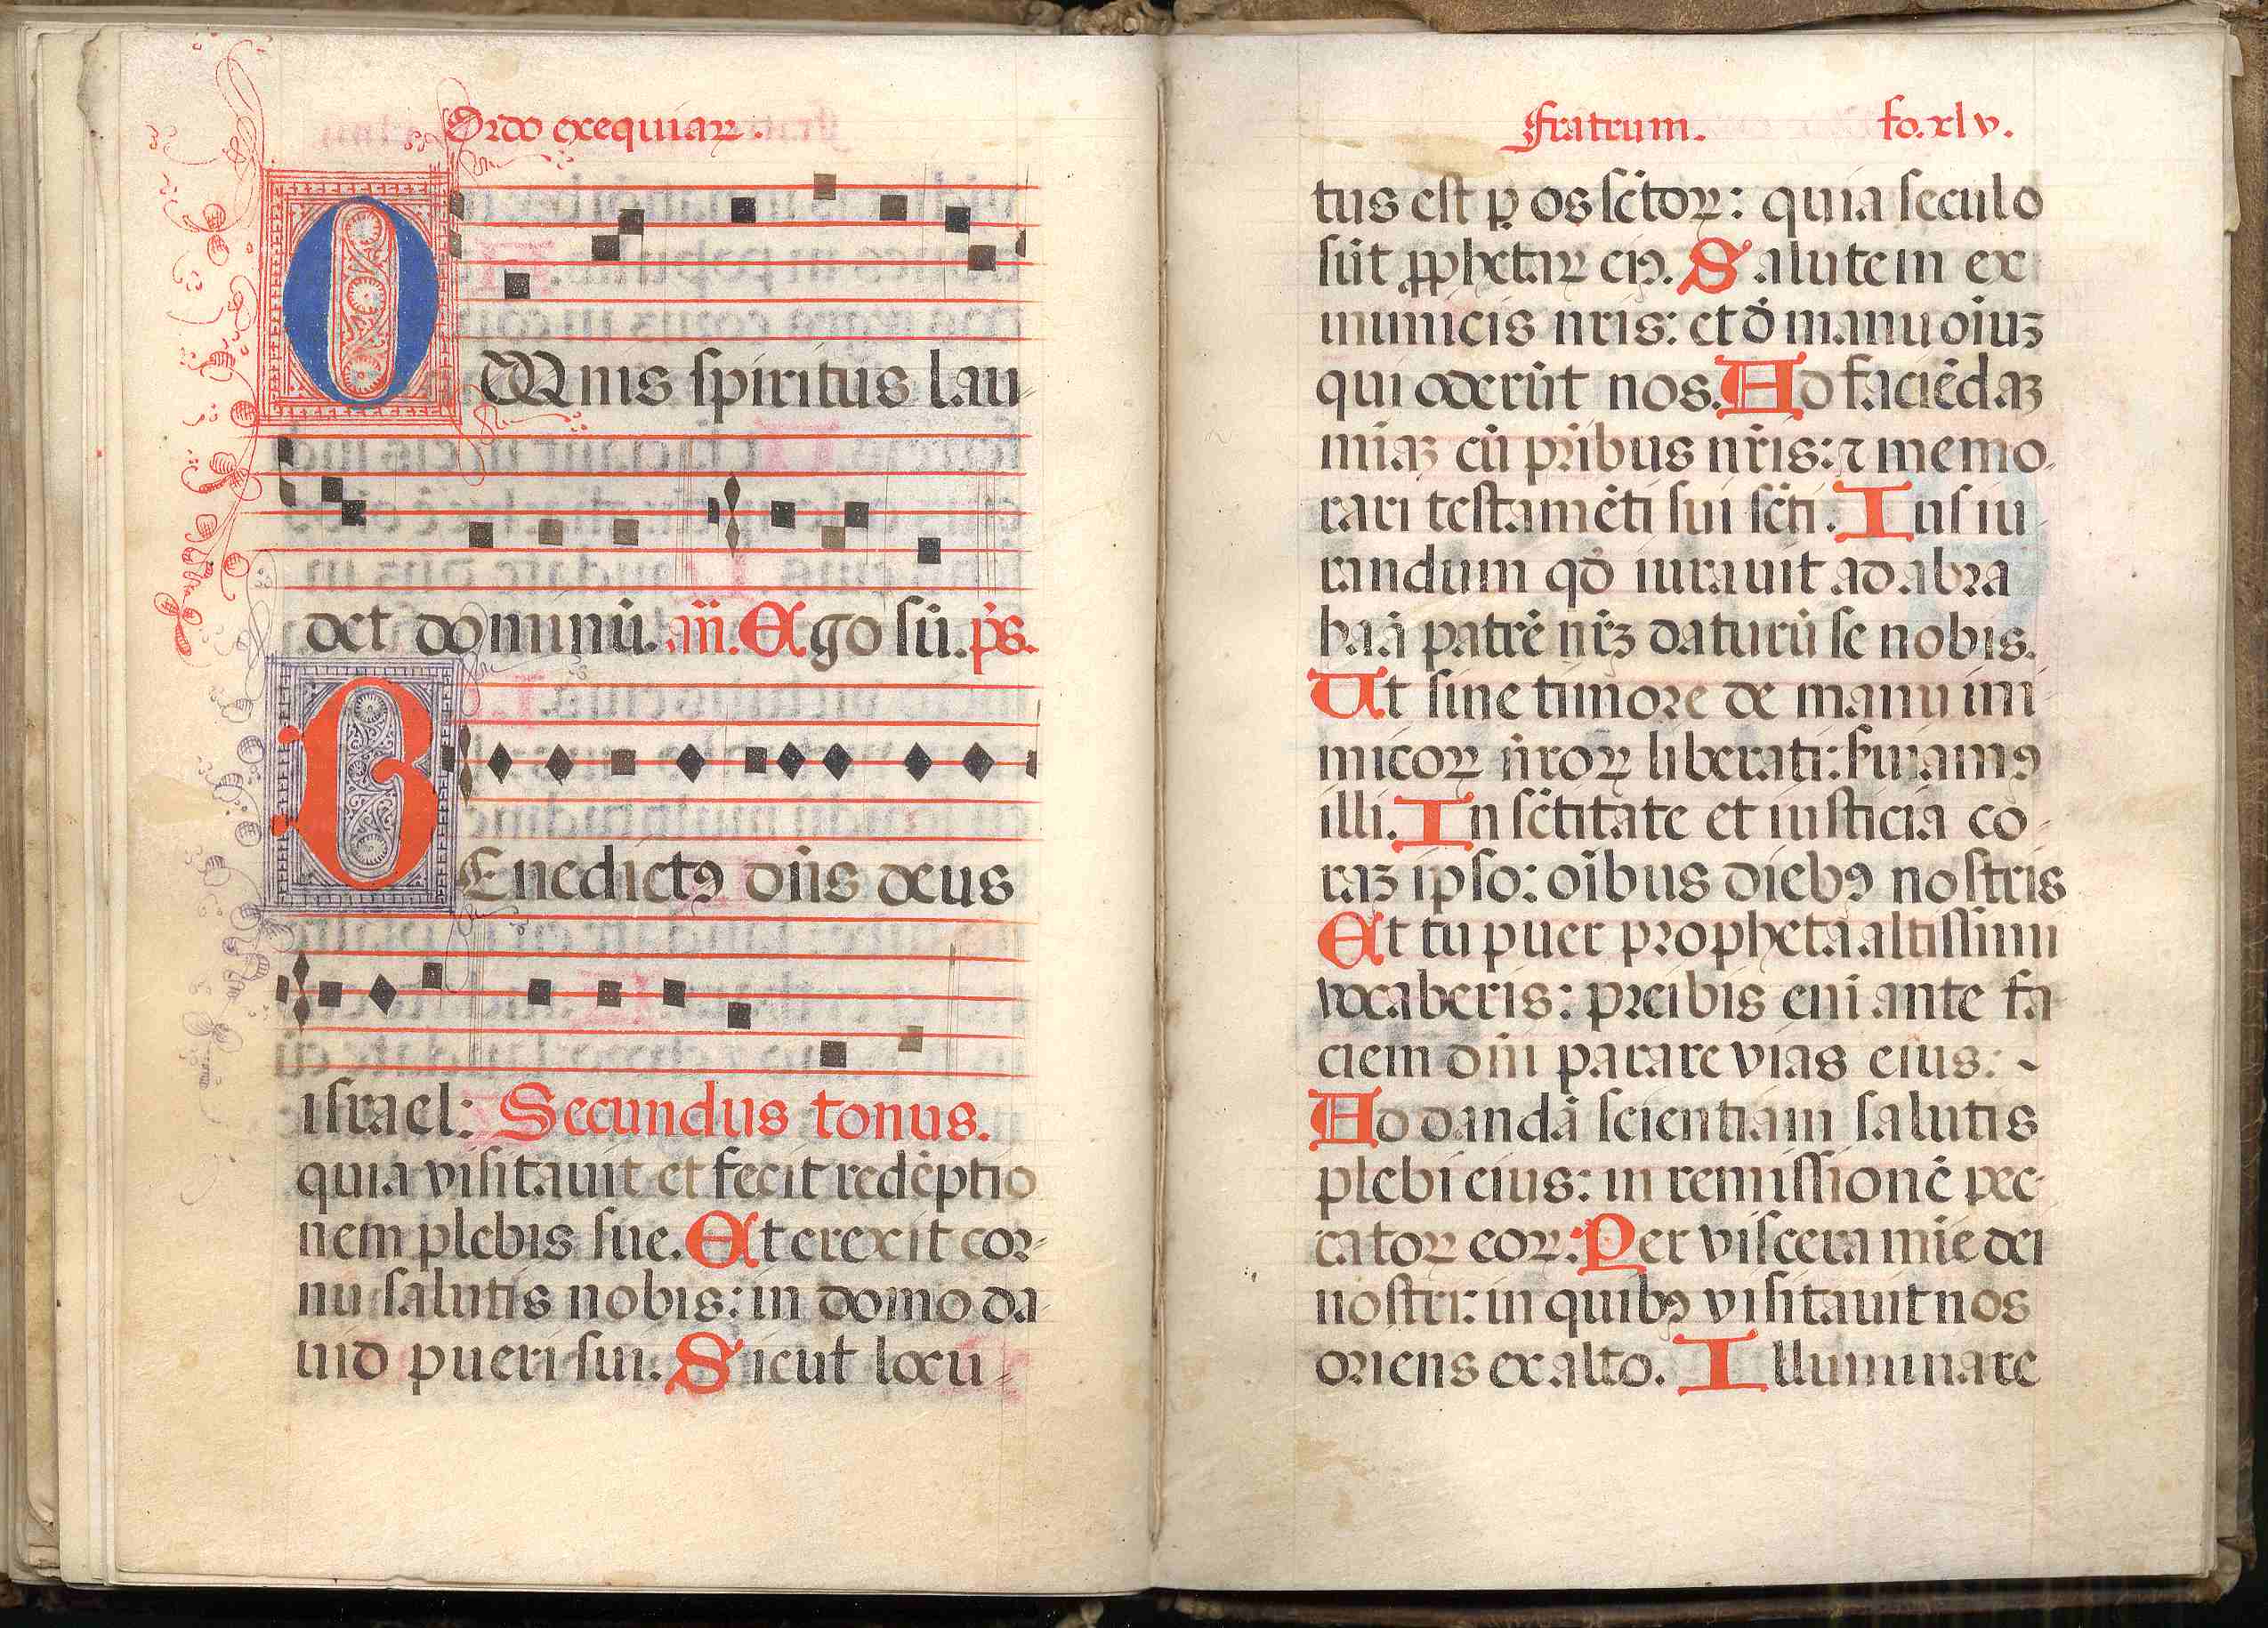 Ordo exequiaꝝ.
OMnis spiritus lau-
det dominū. añ. Ego sū. ps̄.
BEnedictꝰ dn̄s deus
israel: Secundus tonus.
quia visitauit et fecit redēptio
nem plebis sue. Et erexit cor-
nu salutis nobis: in domo da-
uid pueri sui. Sicut locu-
Fratrum. fo. xlv.
tus est ꝑ os sc̄toꝝ: quia seculo
sūt ꝓphetaꝝ eiꝰ. Salutem ex
inimicis nr̄is: et đ manu oīuꝫ
qui oderūt nos. Ad faciēdaꝫ
mīaꝫ cū pr̄ibus nr̄is: ⁊ memo-
rari testamēti sui sc̄ti. Iusiu-
randum qđ iurauit ad abra
haā patrē nr̄ꝫ daturū se nobis.
Ut sine timore de manu ini-
micoꝝ nr̄oꝝ liberati: suiamꝰ
illi. In sc̄titate et iusticia co-
raꝫ ipso: oībus diebꝰ nostris
Et tu puer propheta altissimi
vocaberis: preibis eni ante fa
ciem dn̄i parare vias eius: ~
Ad dandā scientiam salutis
plebi eius: in remissionē pec-
catoꝝ eoꝝ: Per viscera mīe dei
nostri: in quibꝰ visitauit nos
oriens ex alto. Illuminare